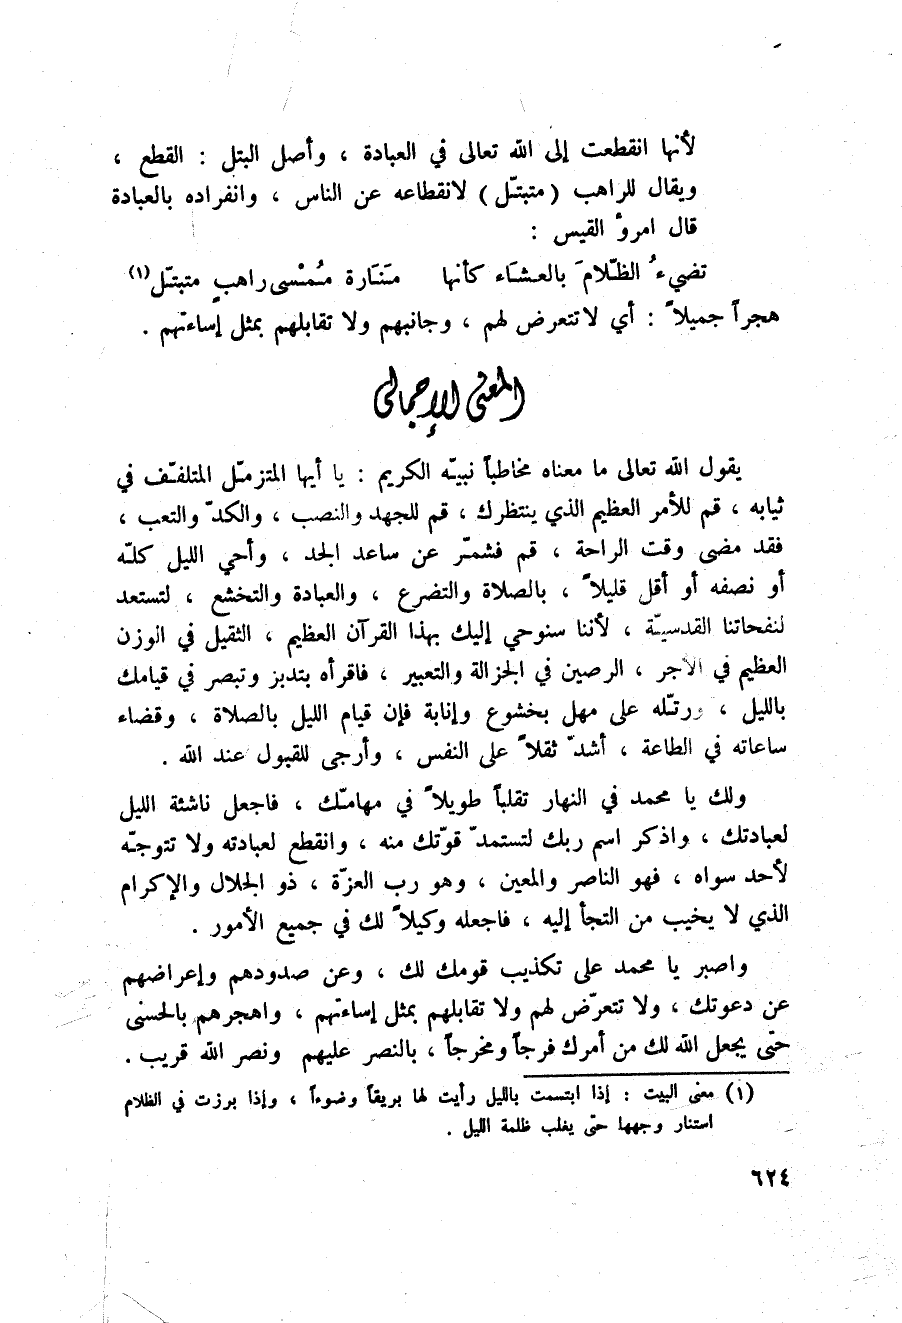 لأنها انقطعت إلى الله تعالى في العبادة ، وأصل البتل : القطع ،
ويقال للراهب ( متبتّل ) لانقطاعه عن الناس ، وانفراده بالعبادة
قال امرؤ القيس :
تضيءُ الظّلامَ بالعشاء كأنها مَنَارة مُمْسى راهبٍ متبتّل(١)
هجراً جميلاً : أي لا تتعرض لهم ، وجانبهم ولا تقابلهم بمثل إساءتهم .
المعنى الإجمالي
يقول الله تعالى ما معناه مخاطباً نبيّه الكريم : يا أيها المتزمّل المتلفّف في
ثيابه ، قم للأمر العظيم الذي ينتظرك ، قم للجهد والنصب ، والكدّ والتعب ،
فقد مضى وقت الراحة ، قم فشمّر عن ساعد الجد ، وأحي الليل كلّه
أو نصفه أو أقل قليلاً ، بالصلاة والتضرع ، والعبادة والتخشع ، لتستعد
لنفحاتنا القدسيّة ، لأننا سنوحي إليك بهذا القرآن العظيم ، الثقيل في الوزن
العظيم في الأجر ، الرصين في الجزالة والتعبير ، فاقرأه بتدبز وتبصر في قيامك
بالليل ، ورتّله على مهل بخشوع وإنابة فإن قيام الليل بالصلاة ، وقضاء
ساعاته في الطاعة ، أشدّ ثقلاً على النفس ، وأرجى للقبول عند الله .
ولك يا محمد في النهار تقلباً طويلاً في مهامّك ، فاجعل ناشئة الليل
لعبادتك ، واذكر اسم ربك لتستمدّ قوّتك منه ، وانقطع لعبادته ولا تتوجّه
لأحد سواه ، فهو الناصر والمعين ، وهو رب العزّة ، ذو الجلال والإكرام
الذي لا يخيب من التجأ إليه ، فاجعله وكيلاً لك في جميع الأمور .
واصبر يا محمد على تكذيب قومك لك ، وعن صدودهم وإعراضهم
عن دعوتك ، ولا تتعرّض لهم ولا تقابلهم بمثل إساءتهم ، واهجرهم بالحسنى
حتّى يجعل الله لك من أمرك فرجاً ومخرجاً ، بالنصر عليهم ونصر الله قريب .
(١) معنى البيت : إذا ابتسمت بالليل رأيت لها بريقاً وضوءاً ، وإذا برزت في الظلام
استنار وجهها حتّى يغلب ظلمة الليل .
٦٢٤